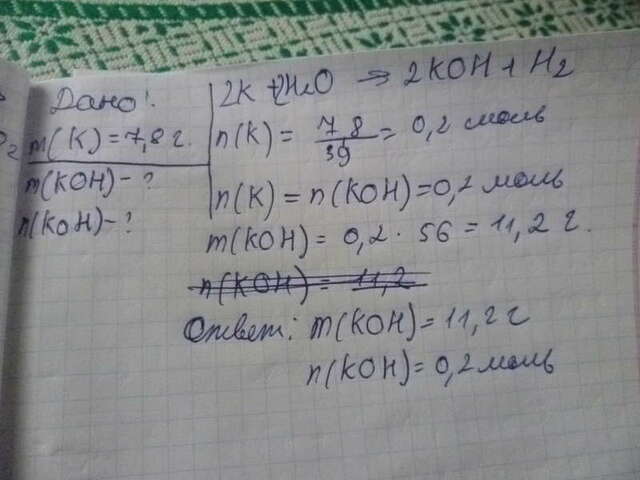 Дано:
m(K) = 7,8 г.
m(KOH) - ?
n(KOH) - ?
2K + 2H2O → 2KOH + H2
n(K) = 7,8/39 = 0,2 моль
n(K) = n(KOH) = 0,2 моль
m(KOH) = 0,2 · 56 = 11,2 г.
n(KOH) = 11,2
Ответ: m(KOH) = 11,2 г
n(KOH) = 0,2 моль